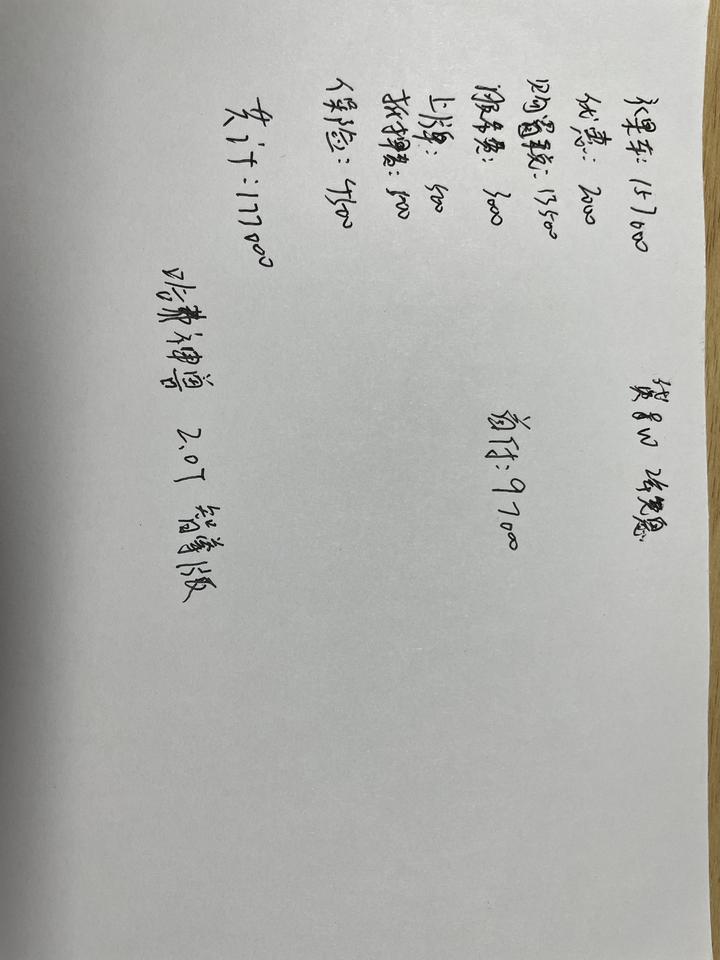 裸车: 157000
优惠: 2000
购置税: 13500
服务费: 3000
上牌: 500
抵押费: 500
保险: 4500
共计: 177000
贷8W 2年免息
首付: 97000
哈弗神兽 2.0T 智尊版